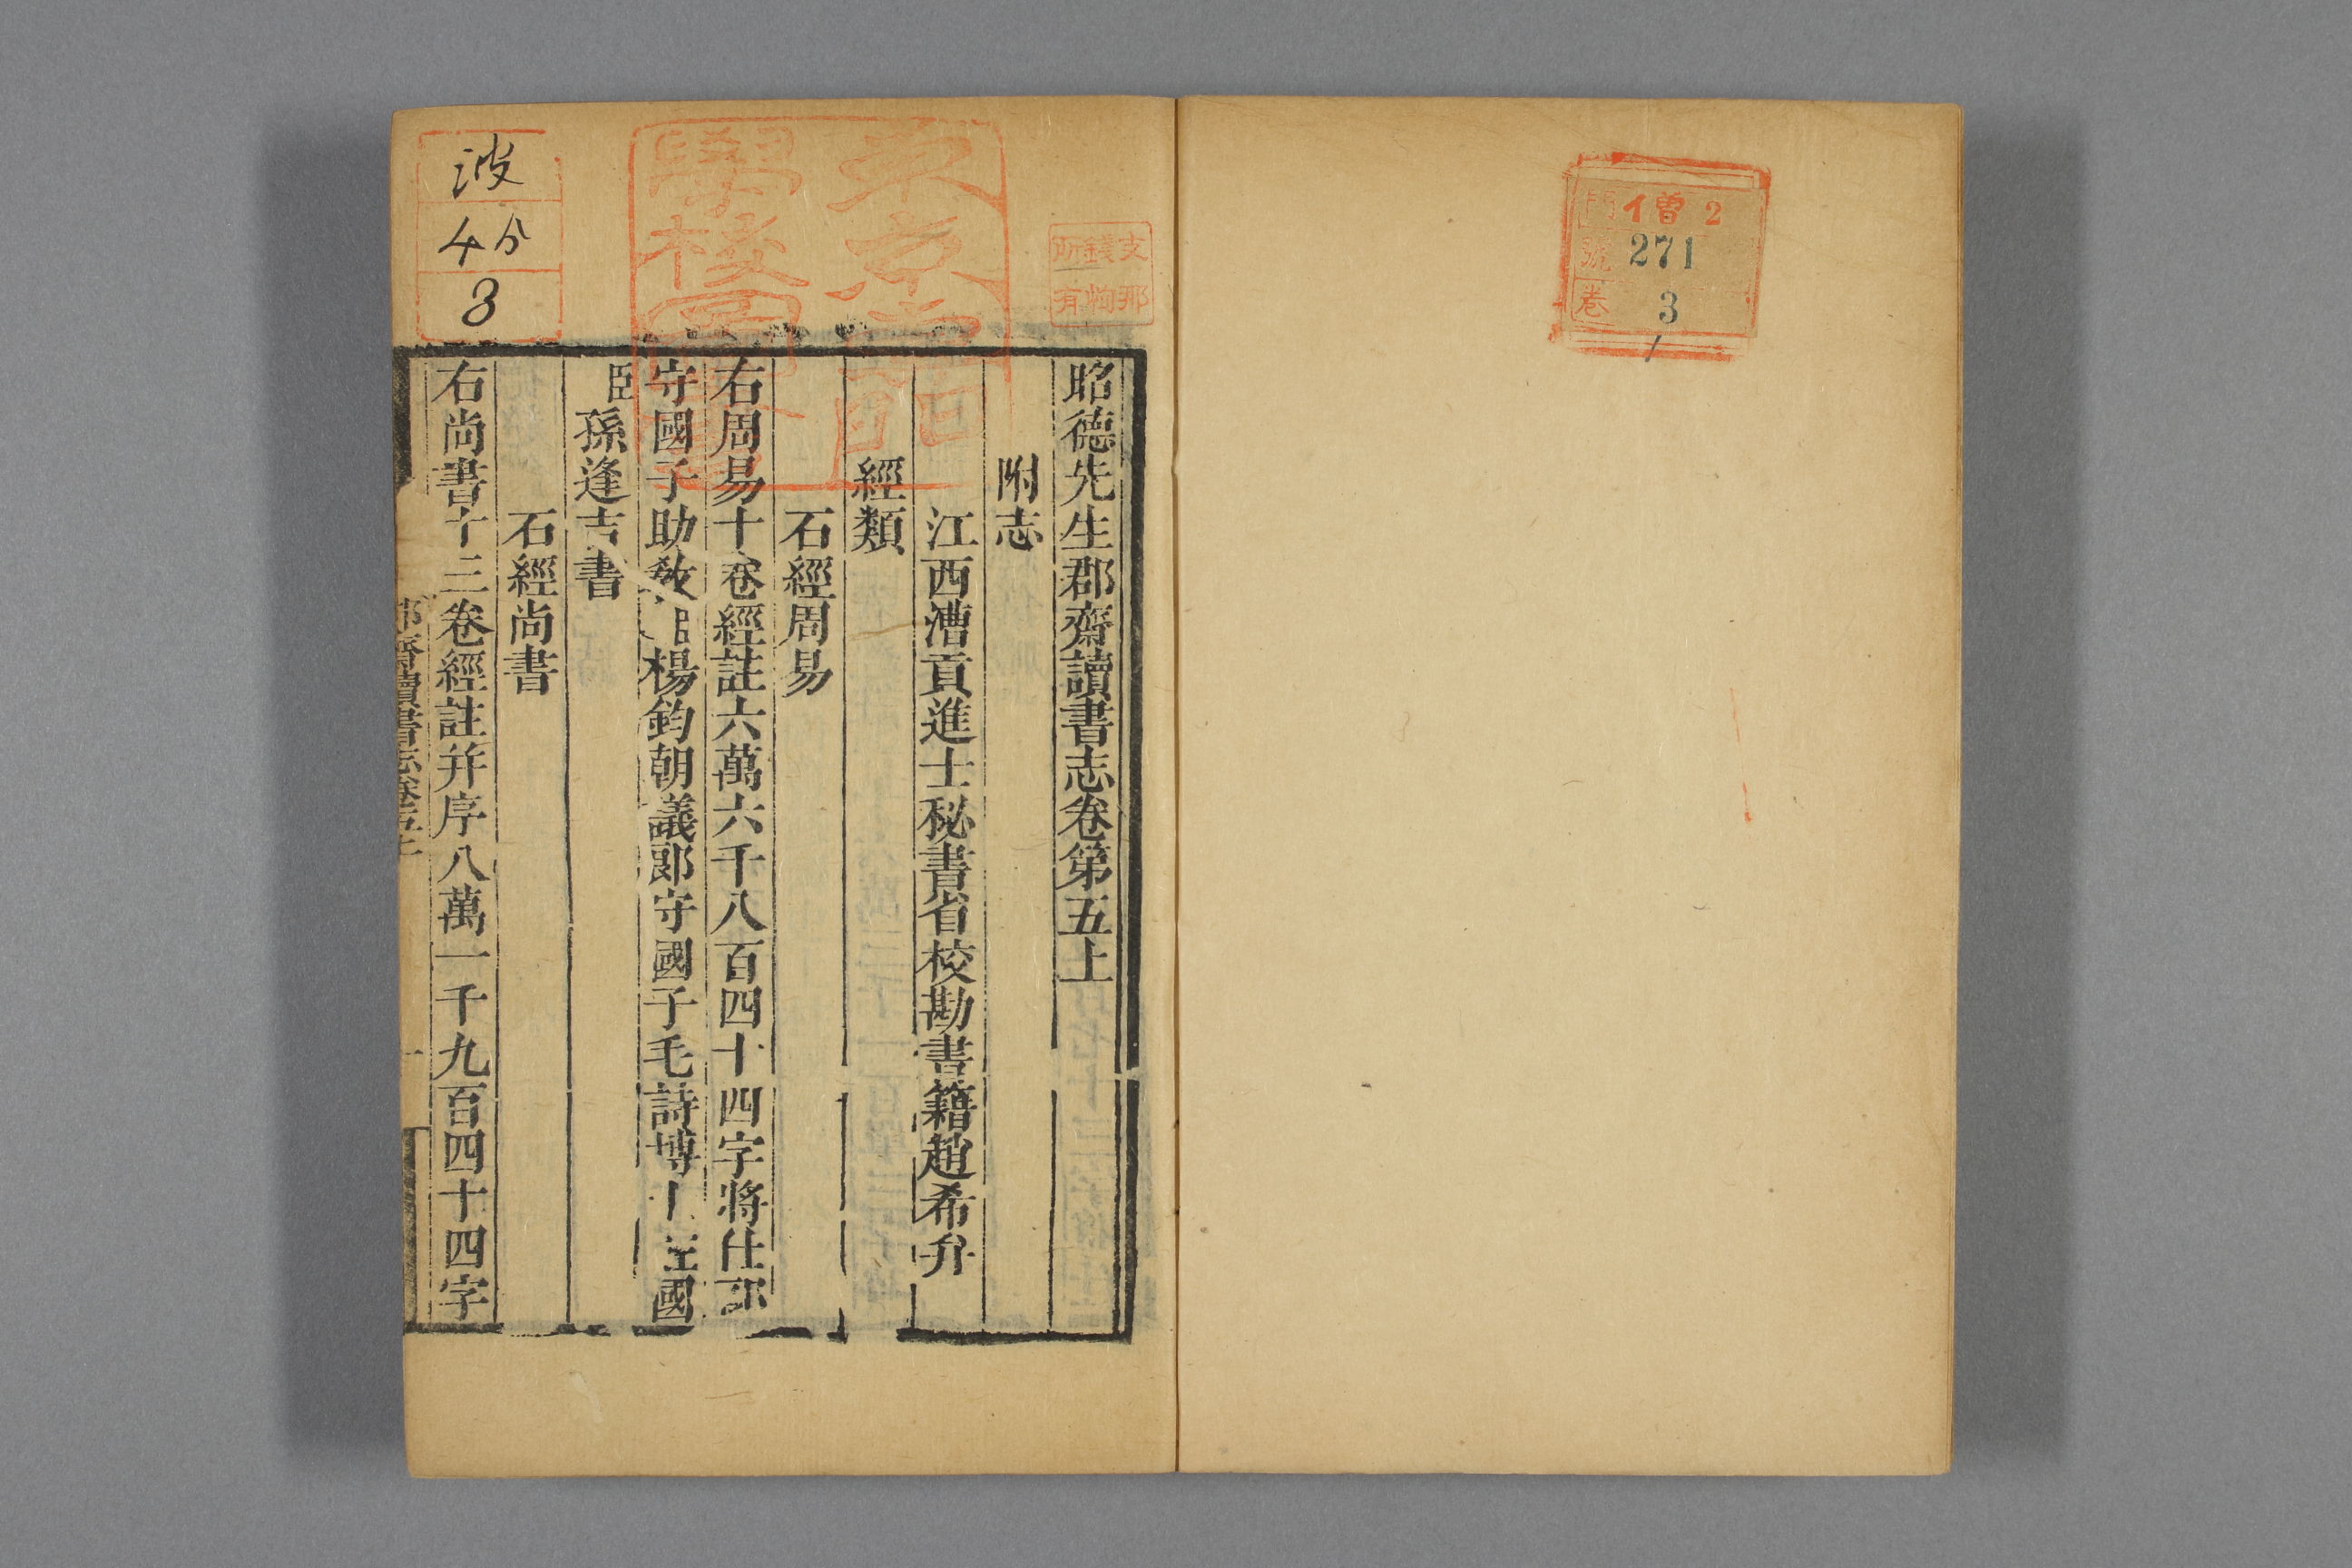 僧 2
門
271
號
3
卷
昭德先生郡齋讀書志卷第五上
附志
江西漕貢進士秘書省校勘書籍趙希弁
經類
石經周易
右周易十卷經註六萬六千八百四十四字將仕郎
守國子助教臣楊鈞朝議郎守國子毛詩博士柱國
臣孫逢吉書
石經尚書
右尚書十三卷經註并序八萬一千九百四十四字
郡齋讀書志卷五上
一
支那
錢恂
所有
波
45
3